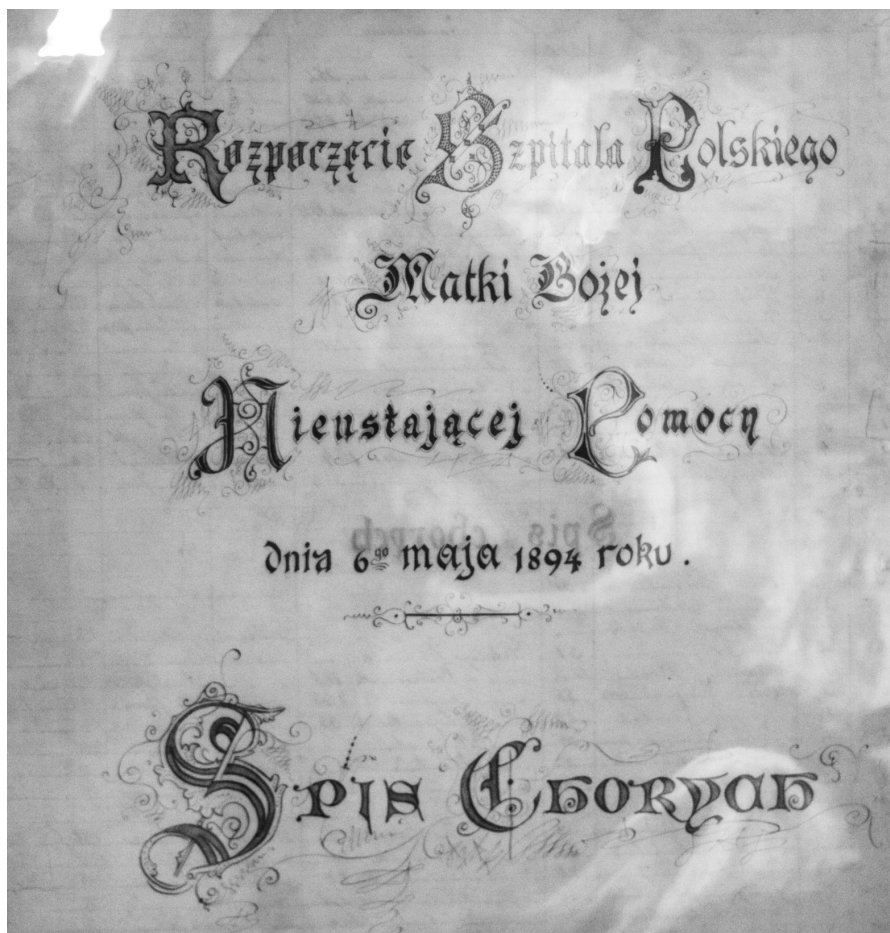 Rozpoczęcie Szpitala Polskiego
Matki Bożej
Nieustającej Pomocy
Spis chorych
dnia 6go maja 1894 roku.
Spis Chorych